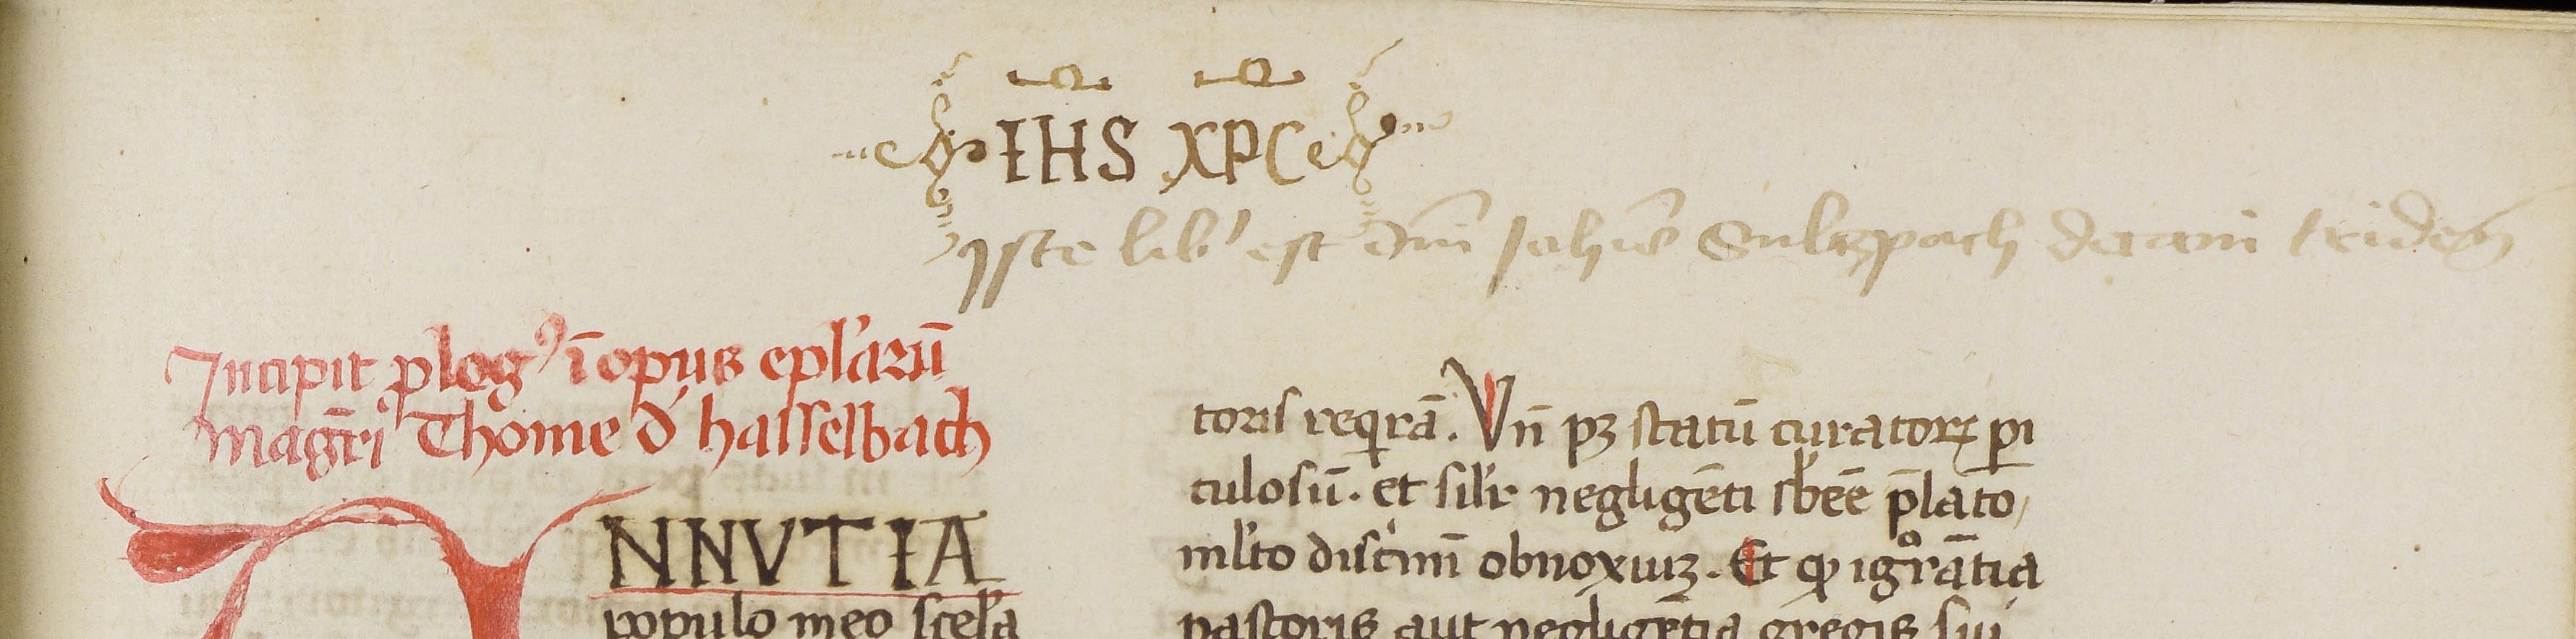 IHS XPC
Iste lib' est dn̄i Joh̄is Sultzpach decani trideñ
Incipit ꝓlogꝰ ī opus epl'arū
magr̄i Thome d' hasselbach
NNVTIA
populo meo scel'a
toris reqrā. Vn̄ pꝫ statū curatoꝝ ꝑi
culosū. et sil'r negligēti sb'ee p̄lato,
ml'to discͥmī obnoxiuꝫ. Et ꝙ igᵒrātia
pastoris aut negligētia gregis sui